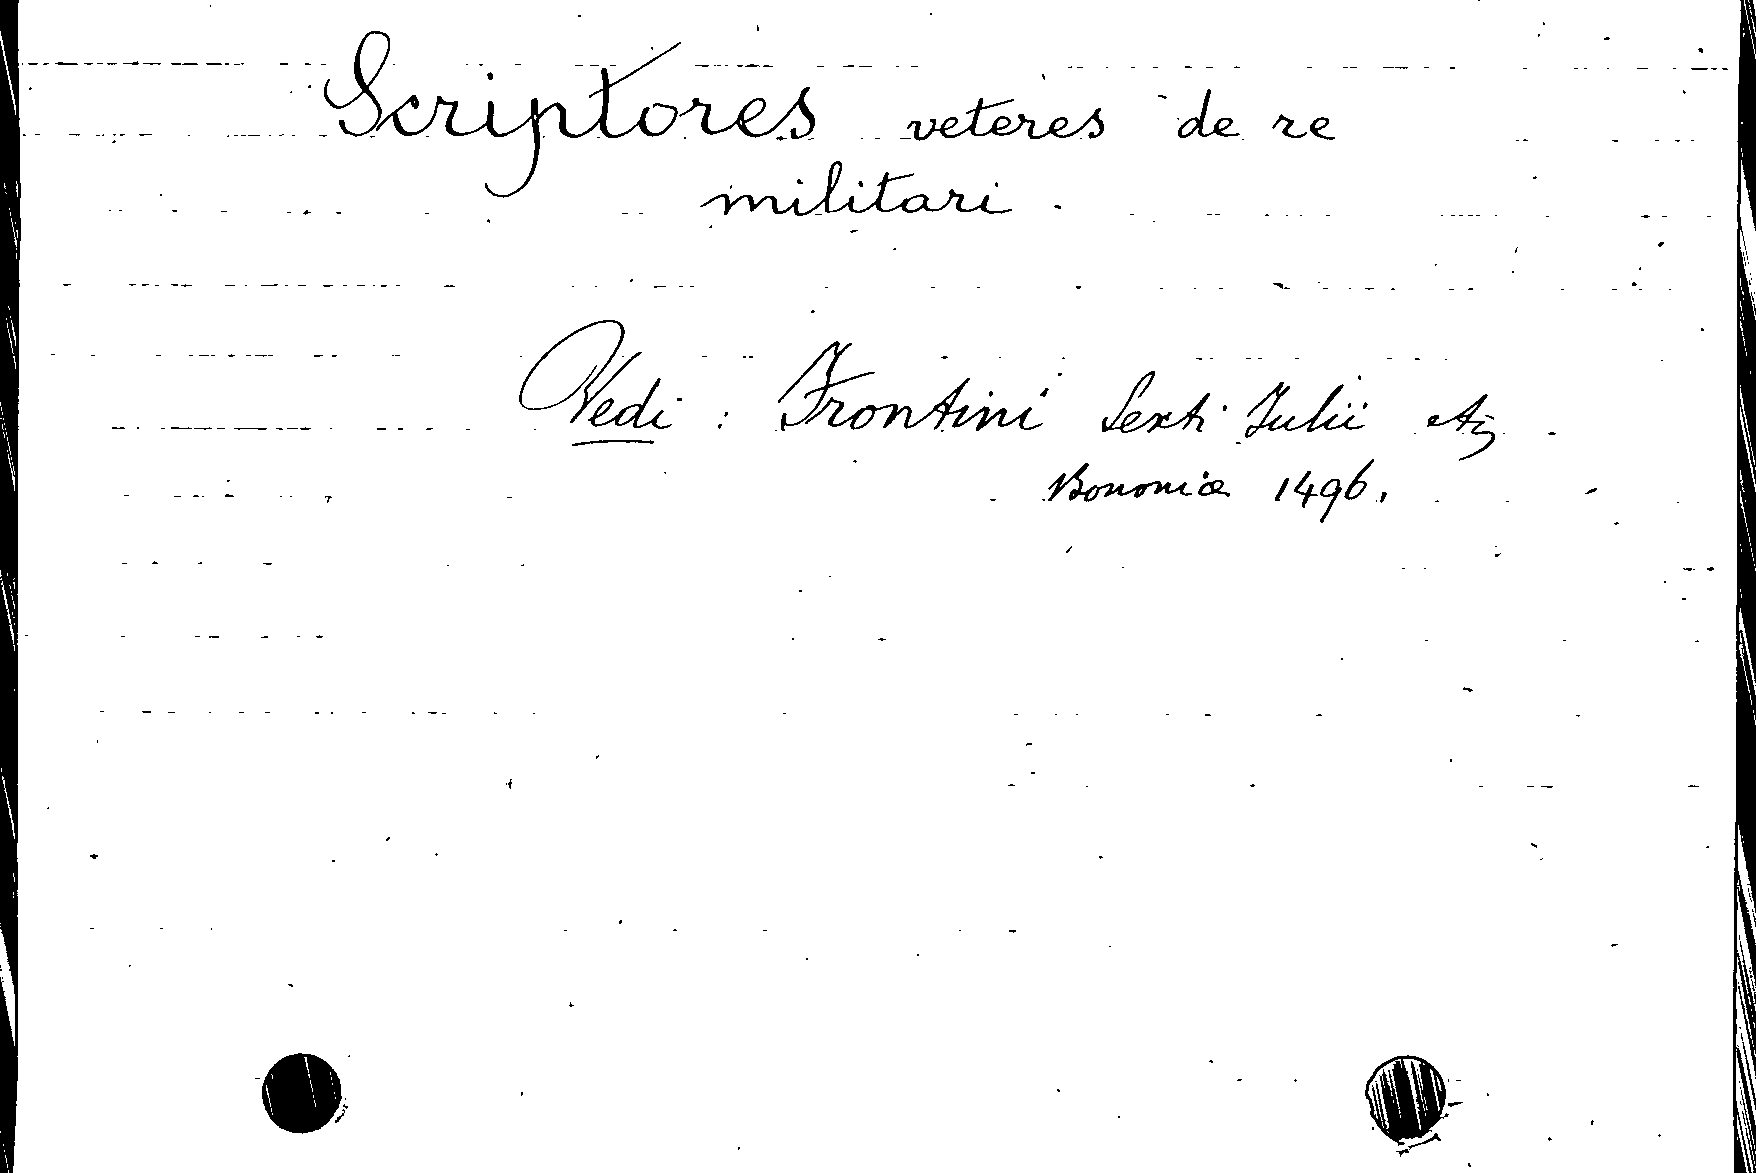 Scriptores veteres de re
militari.
Vedi: Frontini Sexti Julii
Bononiæ 1496.